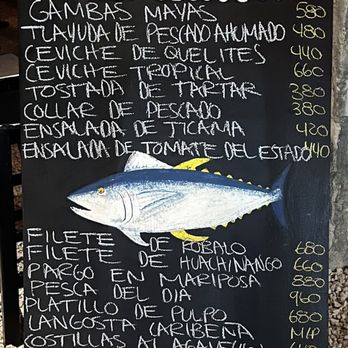 GAMBAS MAYAS 580
TLAYUDA DE PESCADO AHUMADO 480
CEVICHE DE QUELITES 440
CEVICHE TROPICAL 660
TOSTADA DE TARTAR 380
COLLAR DE PESCADO 380
ENSALADA DE TICAMA 420
ENSALADA DE TOMATE DEL ESTADO 440
FILETE DE ROBALO 680
FILETE DE HUACHINANGO 660
PARGO EN MARIPOSA 880
PESCA DEL DIA 960
PLATILLO DE PULPO 680
LANGOSTA CARIBEÑA M/P
COSTILLAS AL